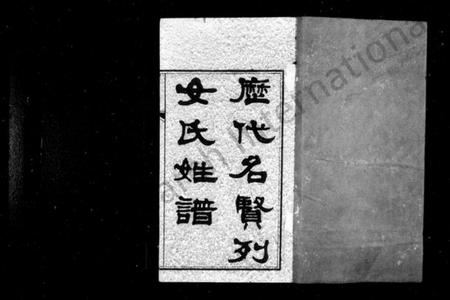 歷代名賢列
女氏姓譜